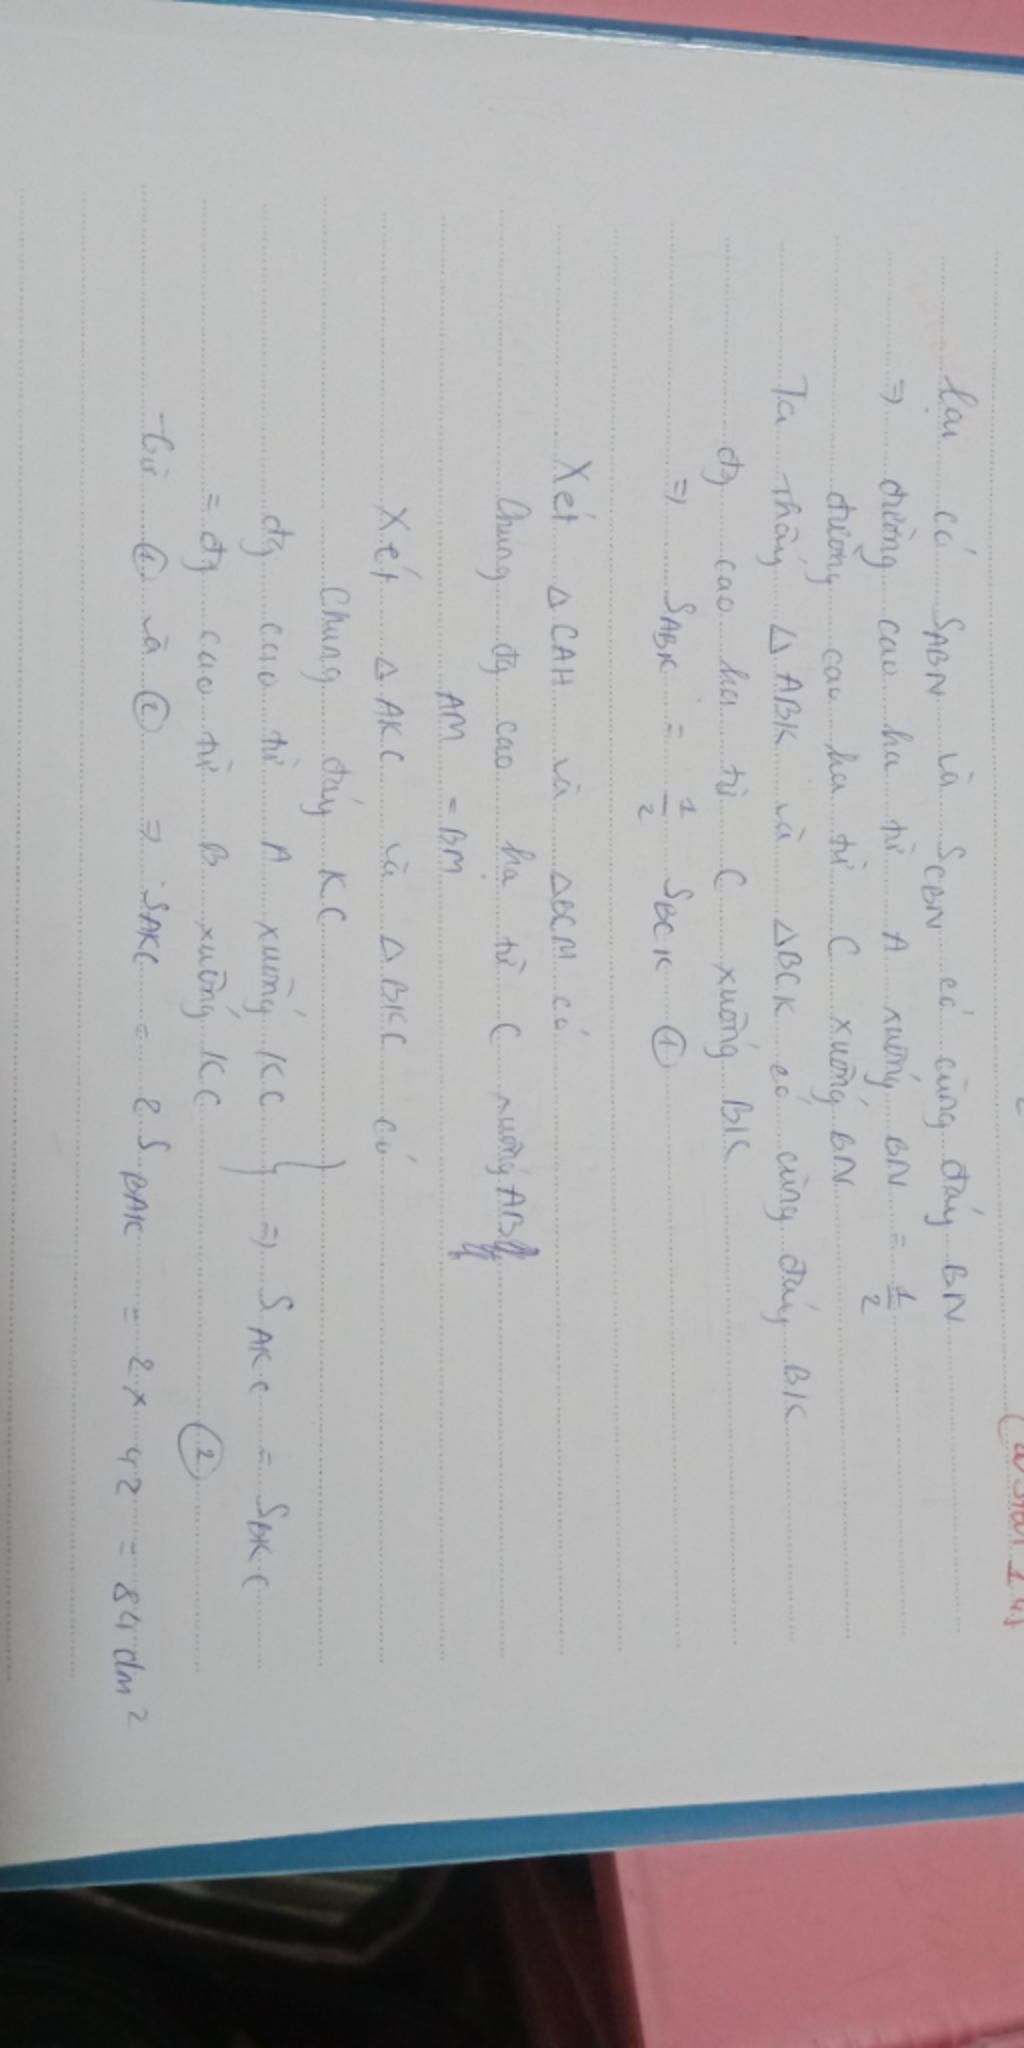 lại có SABN và SCBN có cùng đáy BN
⇒ đường cao hạ từ A xuống BN = 1/2
đường cao hạ từ C xuống BN
Ta thấy Δ ABK và ΔBCK có cùng đáy BK
đg cao hạ từ C xuống BK
⇒ SABK = 1/2 SBCK ①
Xét ΔCAH và ΔBCM có
Chung đg cao hạ từ C xuống AB
AM = BM
Xét ΔAKC và ΔBKC có
Chung đáy KC
đg cao từ A xuống KC } ⇒ SAKC = SBKC
= đg cao từ B xuống KC ②
từ ① và ② ⇒ SAKC = 2SBAK = 2x 42 = 84 dm²